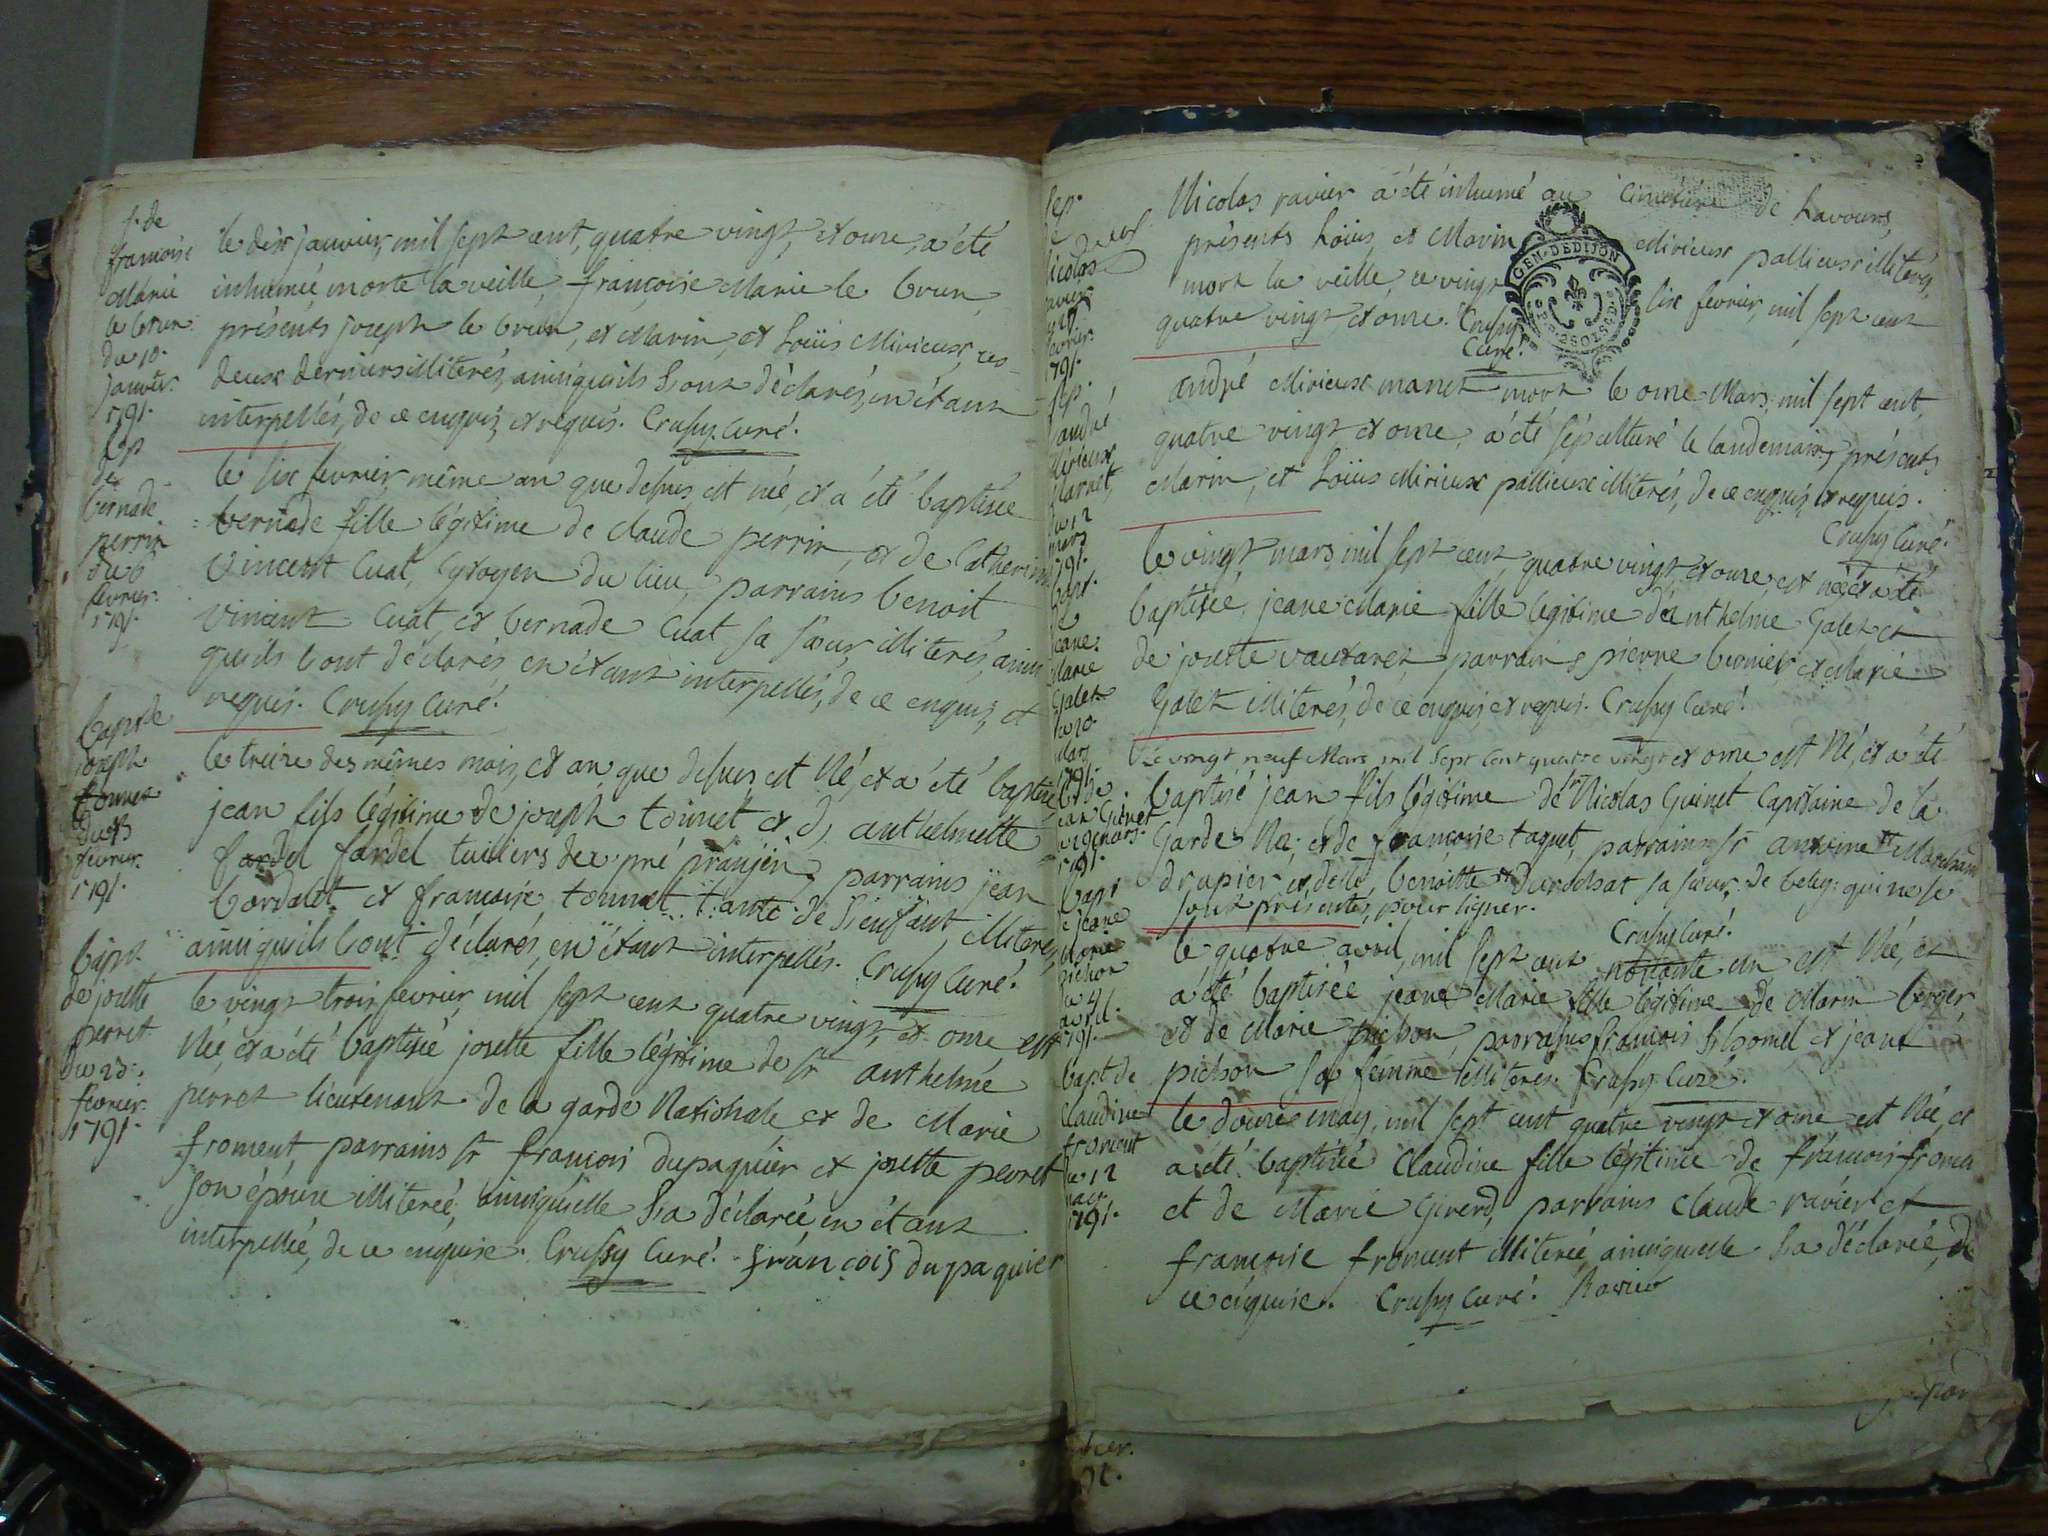 s. de
françoise
Marie
le brun
du 10.
janvier.
1791.
le dix janvier, mil sept cent, quatre vingt, et onze, a été
inhumée, morte la veille, françoise Marie le brun,
présents joseph le brun, et Marin, et Loüis Mirieux, ces
deux derniers illiterés, ainsi qu'ils l'ont déclarés, en étant
interpellés, de ce enquis, et requis. Crussy Curé.
bernade
perrin
du 6
fevrier.
1791.
le six fevrier même an que dessus, est née, et a été baptisée
bernade fille légitime de claude perrin, et de Catherine
Vincent Cuat, Cytoyen du lieu, parrains benoit
Vincent Cuat, et bernade Cuat sa sœur, illiterés, ainsi
qu'ils l'ont déclarés, en étant interpellés, de ce enquis, et
requis. Crussy Curé.
bapt de
joseph
tonnet
du 13
fevrier.
1791.
le treize des mêmes mois, et an que dessus, est Né, et a été baptisé
jean fils légitime de joseph tonnet et d, anthelmette
fardel fardel tuiliers de pré pranjein, parrains jean
bordalet et françoise tonnet tante de l'enfant, illiterés,
ainsi qu'ils l'ont déclarés, en étant interpellés. Crussy Curé.
bapt.
de josette
perret
du 23.
fevrier.
1791.
le vingt trois fevrier, mil sept cent quatre vingt, et onze, est
Née, et a été baptisée josette fille légitime de sr anthelme
perret lieutenant de la garde Nationale et de Marie
froment parrains sr francois dupaquier et josette perret
son épouse illiterée, ainsi qu'elle l'a déclarée en étant
interpellée, de ce enquise. Crussy Curé. françois dupaquier
sep.
de
Nicolas
ravier
fevrier.
1791.
Nicolas ravier a été inhumé au Cimetiere de Lavours,
présents Loüis, et Marin Mirieux pallieux illiterés,
mort la veille, ce vingt six fevrier, mil sept cent
quatre vingt, et onze. Crussy
Curé.
GEN. DE DIJON
sep.
d'andré
Mirieux
Manet,
du 12
mars
1791.
andré Mirieux manet mort le onze Mars, mil sept cent,
quatre vingt et onze, a été sépulturé le landemain, présents
Marin, et Loüis Mirieux pallieux illiterés, de ce enquis, et requis.
Crussy Curé.
bapt.
de
jeane.
Marie
Galet
du 20.
Mars
1791.
le vingt, mars, mil sept cent, quatre vingt, et onze, est née, et a été
baptisée, jeane Marie fille legitime d'anthelme Galet et
de josette vautaret, parrains pierre bernier et Marie
Galet illiterés, de ce enquis, et requis. Crussy Curé.
bt de
jean Guinet
du 29 mars.
1791.
Le vingt neuf Mars mil sept cent quatre vingt et onze, est Né, et a été
baptisé jean fils légitime de sr Nicolas Guinet Capitaine de la
Garde Nle; et de françoise taquet, parrains sr antoine Marchand
drapier et delle benoitte durochat sa sœur, de beley: qui ne se
sont présentés, pour signer.
Crussy Curé.
bapt
de jeane
Marie
pichon
du 4
avril.
1791.
le quatre avril, mil sept cent nonante un est Née, et
a été baptisée jeane Marie fille légitime de Marin berger,
et de Marie pichon, parrains francois et jeane
pichon sa femme illiteres. Crussy Curé.
bapt de
Claudine
froment
du 12
may
1791.
le douze may, mil sept cent quatre vingt et onze est Née, et
a été baptisée Claudine fille légitime de françois froment
et de Marie Girerd, parrains claude ravier et
françoise froment illiterée, ainsi qu'elle l'a déclarée, de
ce enquise. Crussy Curé. Ravier